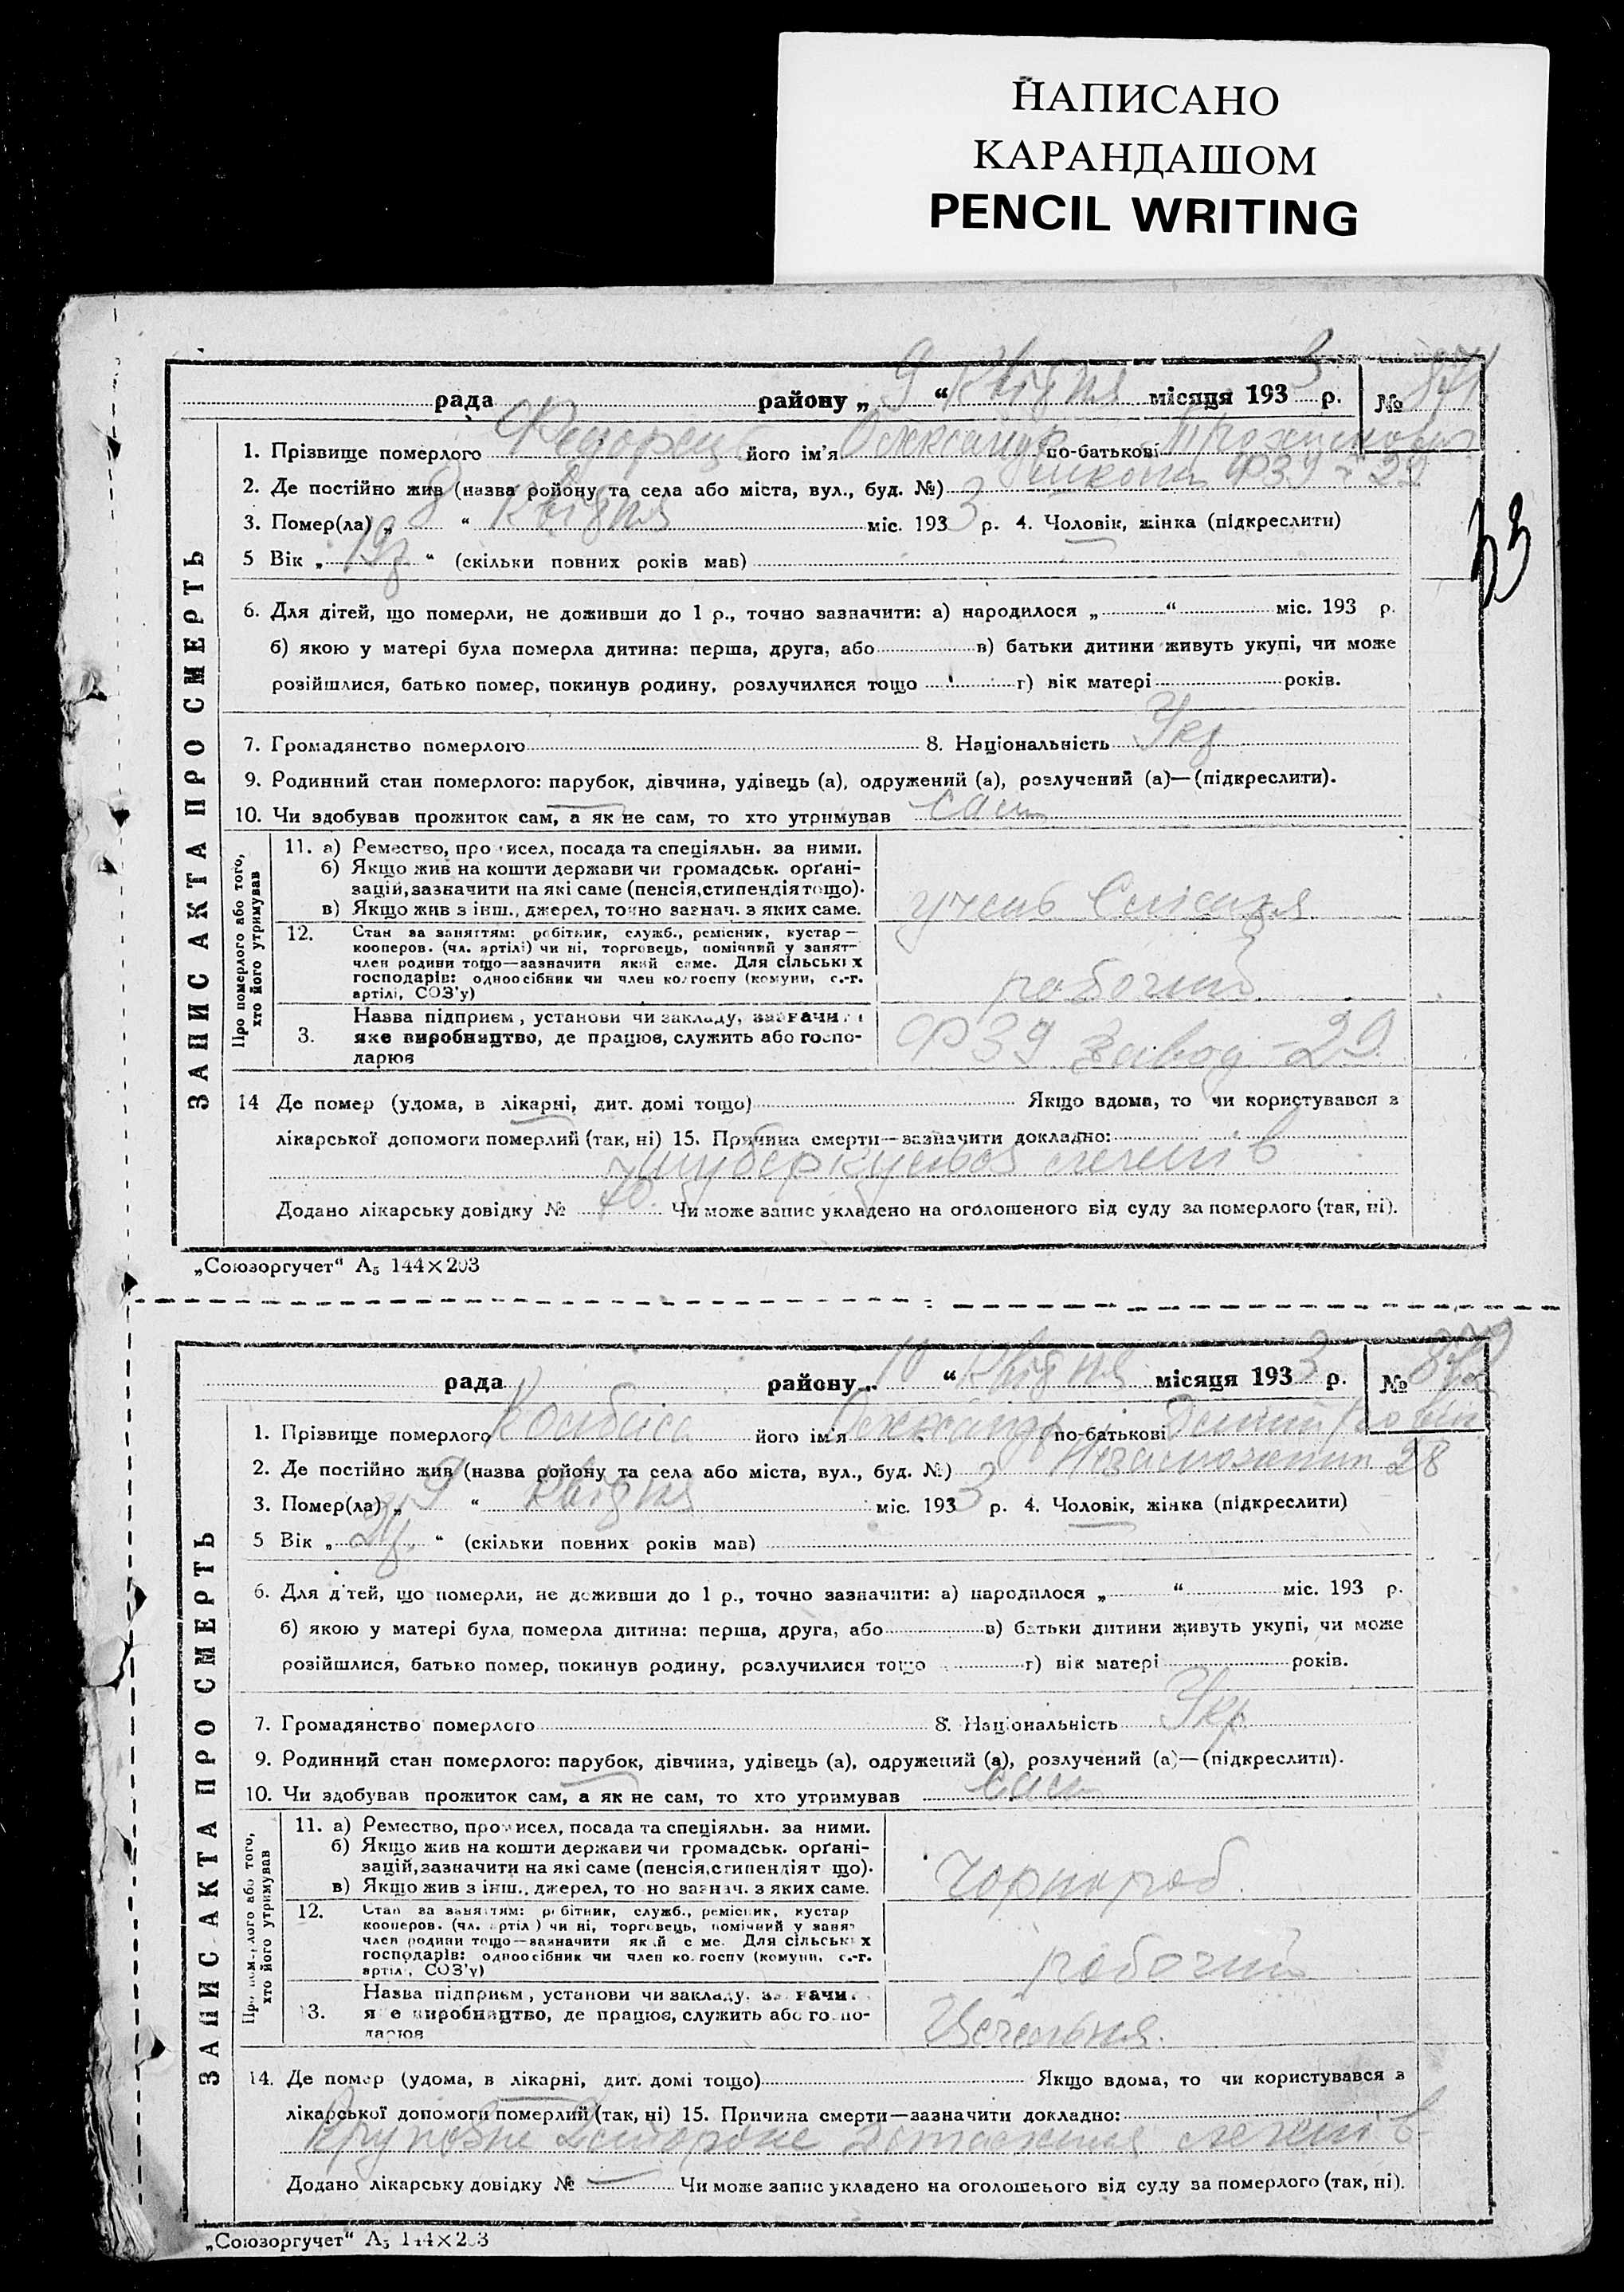 НАПИСАНО
КАРАНДАШОМ
PENCIL WRITING
рада району „ 9 “ Квітня місяця 193 3 р. № 871
1. Прізвище померлого Федорець його ім'я Олександр по-батькові
2. Де постійно жив (назва ройону та села або міста, вул., буд. №) школа ФЗУ 29
3. Помер(ла) „ 8 “ Квітня міс. 193 3 р. 4. Чоловік, жінка (підкреслити)
33
5 Вік „ 19 р “ (скільки повних років мав)
6. Для дітей, що померли, не доживши до 1 р., точно зазначити: а) народилося „ “ міс. 193 р.
б) якою у матері була померла дитина: перша, друга, або в) батьки дитини живуть укупі, чи може
розійшлися, батько помер, покинув родину, розлучилися тощо г) вік матері років.
7. Громадянство померлого 8. Національність Укр
9. Родинний стан померлого: парубок, дівчина, удівець (а), одружений (а), розлучений (а)—(підкреслити).
10. Чи здобував прожиток сам, а як не сам, то хто утримував сам
ЗАПИС АКТА ПРО СМЕРТЬ
Про померлого або того, хто його утримував
11. а) Ремество, про исел, посада та спеціяльн. за ними.
б) Якщо жив на кошти держави чи громадськ. орґані-
зацій, зазначити на які саме (пенсія, стипендія тощо).
в) Якщо жив з інш., джерел, точно зазнач. з яких саме.
учень Слісаря
12. Стан за заняттям: робітник, служб., ремісник, кустар—
кооперов. (чл. артілі) чи ні, торговець, помічний у занят—
член родини тощо—зазначити який саме. Для сільських
господарів: одноосібник чи член колгоспу (комуни, с.-г.
артілі, СОЗ'у)
рабочий
3. Назва підприєм, установи чи закладу, зазначи
яке виробництво, де працює, служить або госпо-
дарює
ФЗУ Завод - 29
14 Де помер (удома, в лікарні, дит. домі тощо) Якщо вдома, то чи користувався з
лікарської допомоги померлий (так, ні) 15. Причина смерти—зазначити докладно:
туберкульоз легенів
Додано лікарську довідку № 40. Чи може запис укладено на оголошеного від суду за померлого (так, ні).
„Союзоргучет“ А₅ 144×203
рада району „ 10 “ Квітня місяця 193 3 р. № 872
1. Прізвище померлого Ковбаса його ім'я Олександр по-батькові
2. Де постійно жив (назва ройону та села або міста, вул., буд. №) Незаможним 28
3. Помер(ла) „ 9 “ Квітня міс. 193 3 р. 4. Чоловік, жінка (підкреслити)
5 Вік „ “ (скільки повних років мав)
6. Для дітей, що померли, не доживши до 1 р., точно зазначити: а) народилося „ “ міс. 193 р.
б) якою у матері була померла дитина: перша, друга, або в) батьки дитини живуть укупі, чи може
розійшлися, батько помер, покинув родину, розлучилися тощо г) вік матері років.
7. Громадянство померлого 8. Національність Укр
9. Родинний стан померлого: парубок, дівчина, удівець (а), одружений (а), розлучений (а)—(підкреслити).
10. Чи здобував прожиток сам, а як не сам, то хто утримував сам
ЗАПИС АКТА ПРО СМЕРТЬ
хто його утримував
11. а) Ремество, про исел, посада та спеціяльн. за ними.
б) Якщо жив на кошти держави чи громадськ. орґані-
зацій, зазначити на які саме (пенсія, стипендія т що).
в) Якщо жив з інш., джерел, то но зазнач. з яких саме.
Чорнороб.
12. Стан за заняттям: робітник, служб., ремісник, кустар
кооперов. (чл. артіл ) чи ні, торговець, помічний у занят
член родини тощо—зазначити який саме. Для сільських
господарів: одноосібник чи член колгоспу (комуни, с.-г.
артілі, СОЗ'у)
рабочий
3. Назва підприєм, установи чи закладу, зазначи
яке виробництво, де працює, служить або госпо-
дарює
Цегельня.
14. Де помер (удома, в лікарні, дит. домі тощо) Якщо вдома, то чи користувався з
лікарської допомоги померлий (так, ні) 15. Причина смерти—зазначити докладно:
Крупозне легенів
Додано лікарську довідку № — Чи може запис укладено на оголошеного від суду за померлого (так, ні).
„Союзоргучет“ А₅ 144×203